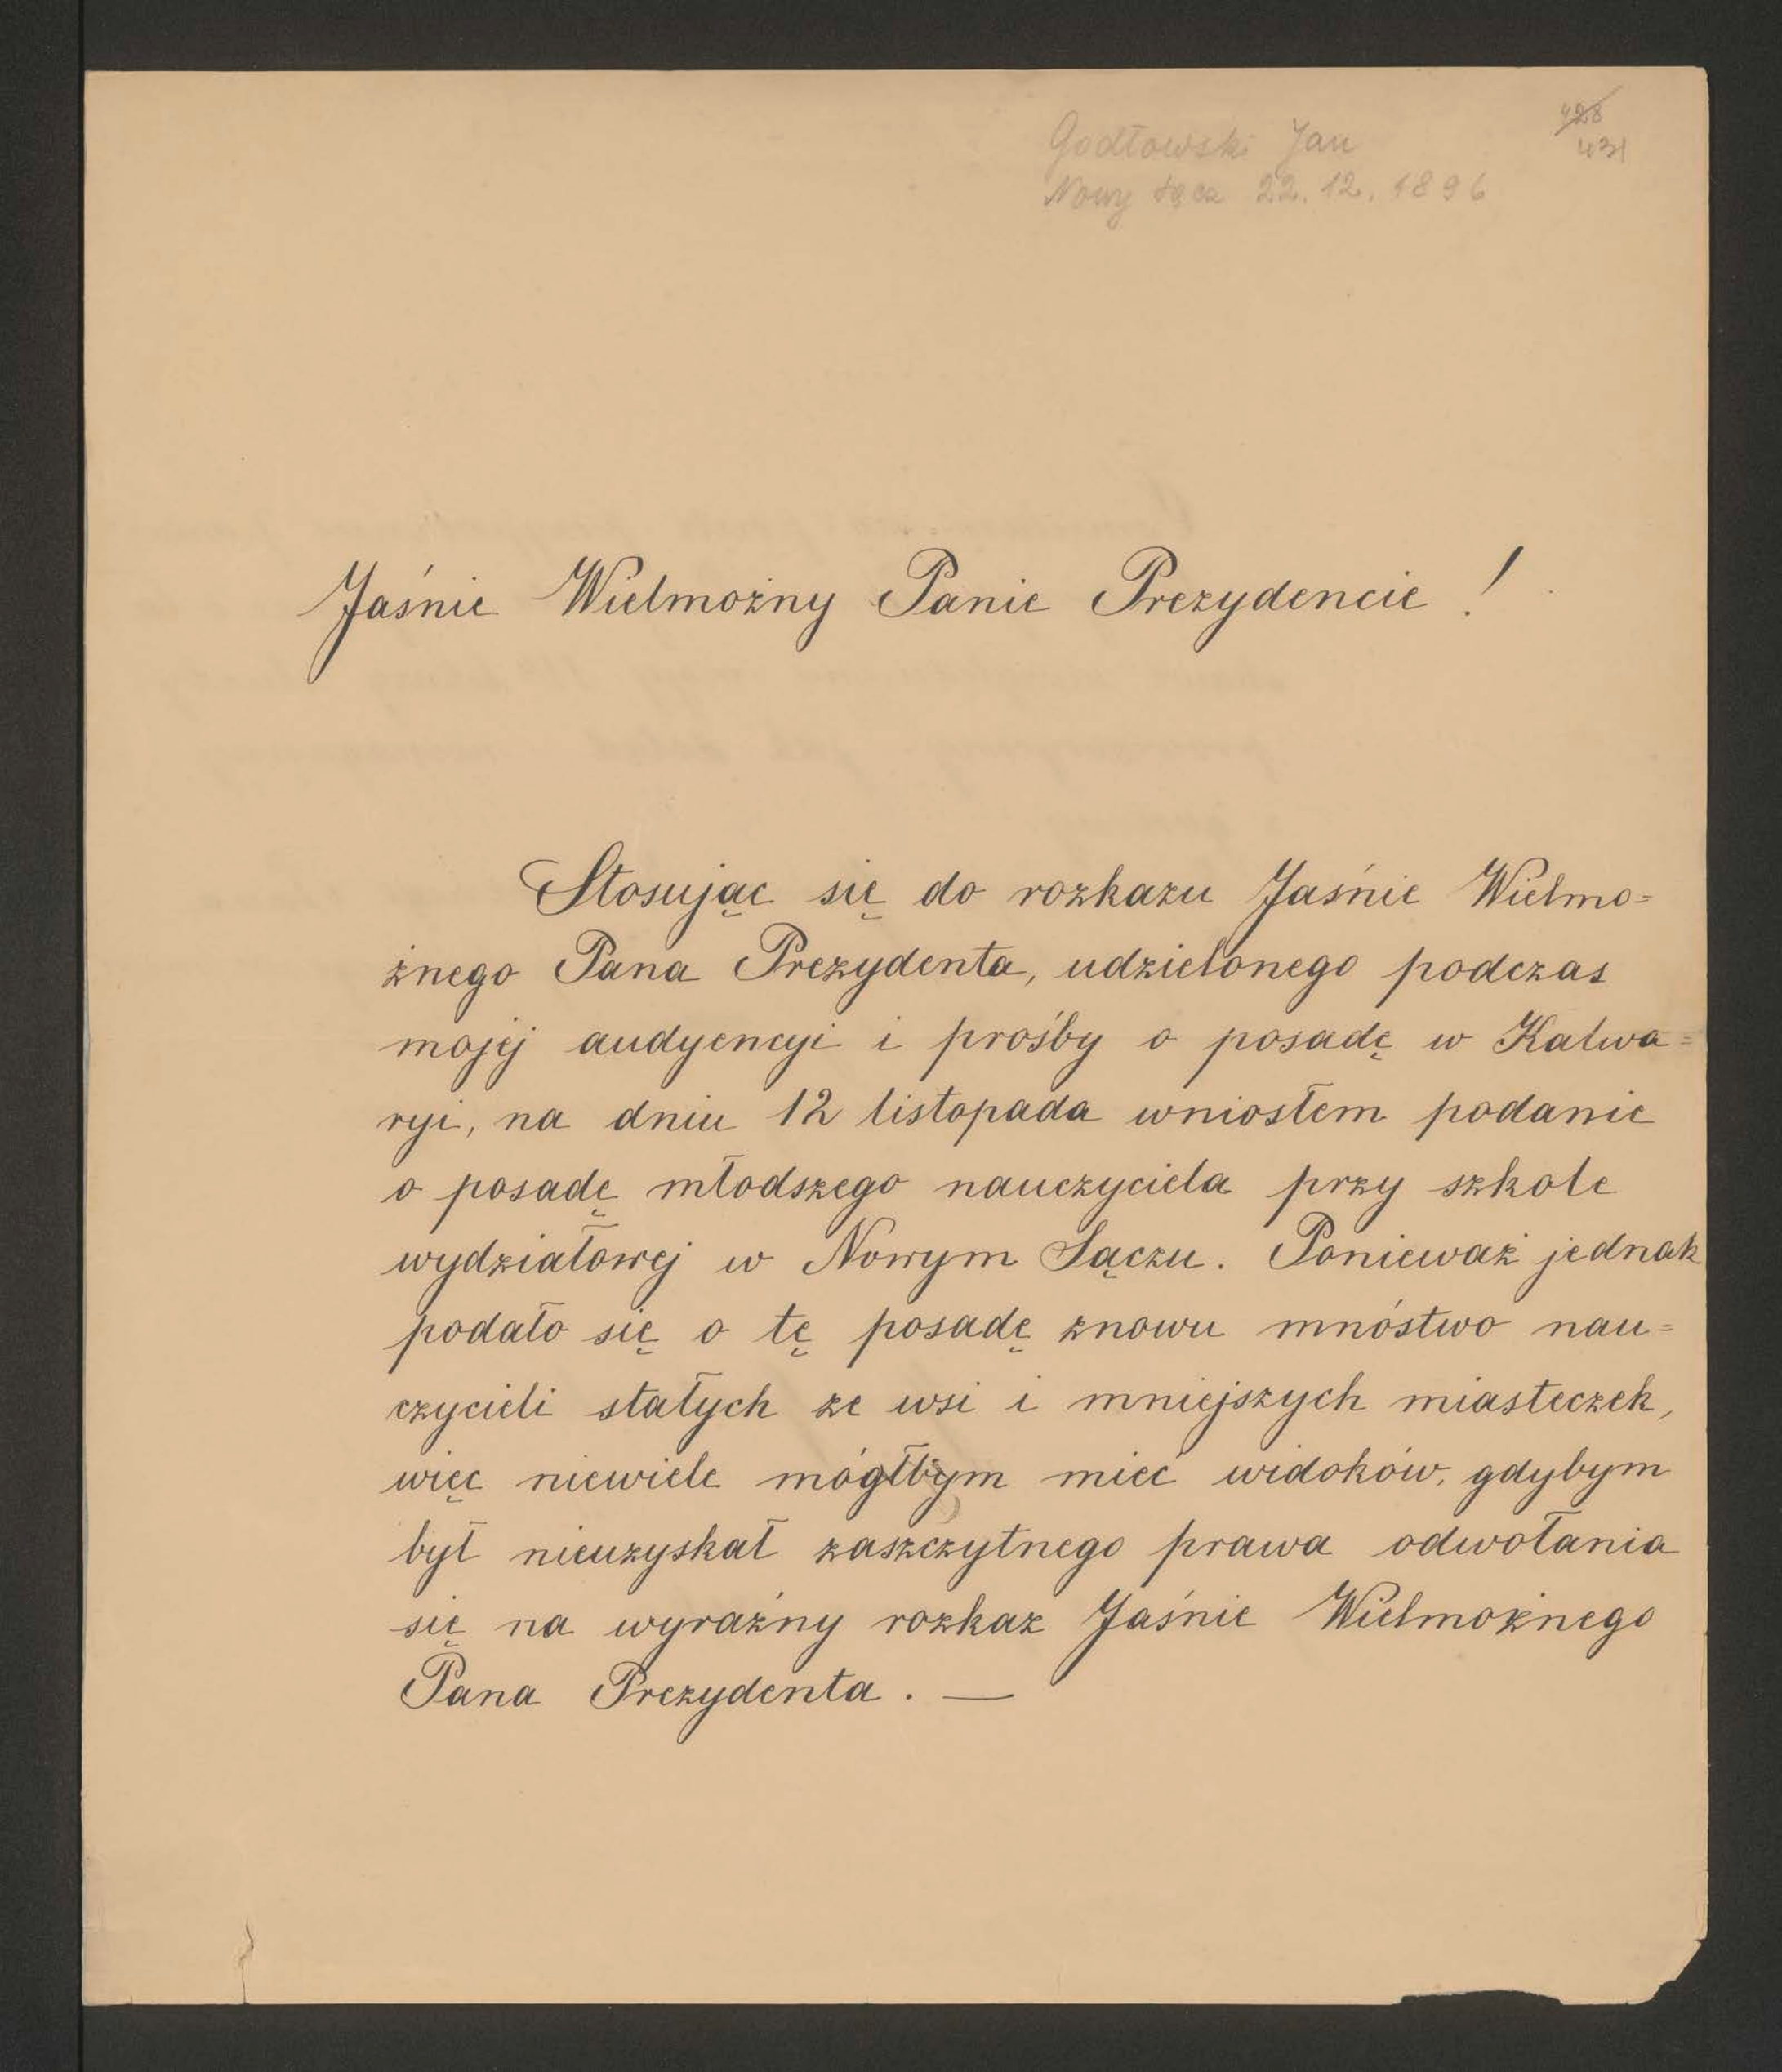 428
Godłowski Jan
431
Nowy Sącz 22.12.1896
Jaśnie Wielmożny Panie Prezydencie !
Stosując się do rozkazu Jaśnie Wielmo=
żnego Pana Prezydenta, udzielonego podczas
mojej audyencyi i prośby o posadę w Kalwa=
ryi, na dniu 12 listopada wniosłem podanie
o posadę młodszego nauczyciela przy szkole
wydziałowej w Nowym Sączu. Ponieważ jednak
podało się o tę posadę znowu mnóstwo nau=
czycieli stałych ze wsi i mniejszych miasteczek,
więc niewiele mógłbym mieć widoków, gdybym
był nieuzyskał zaszczytnego prawa odwołania
się na wyraźny rozkaz Jaśnie Wielmożnego
Pana Prezydenta. —